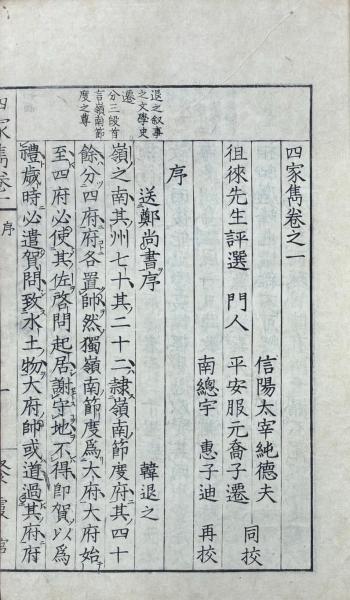 四家雋卷之一
信陽太宰純德夫
徂徠先生評選 門人 平安服元喬子遷 同校
南總宇 惠子迪 再校
序
送鄭尚書序 韓退之
嶺之南其州七十其二十二隷嶺南節度府其四十
餘分四府府各置帥然獨嶺南節度爲大府大府始
至四府必使其佐啓問起居謝守地不得即賀以爲
禮歲時必遣賀問致水土物大府帥或道過其府府
退之叙事
之文學史
遷
分三段首
言嶺南節
度之尊
四家雋卷一 序 一